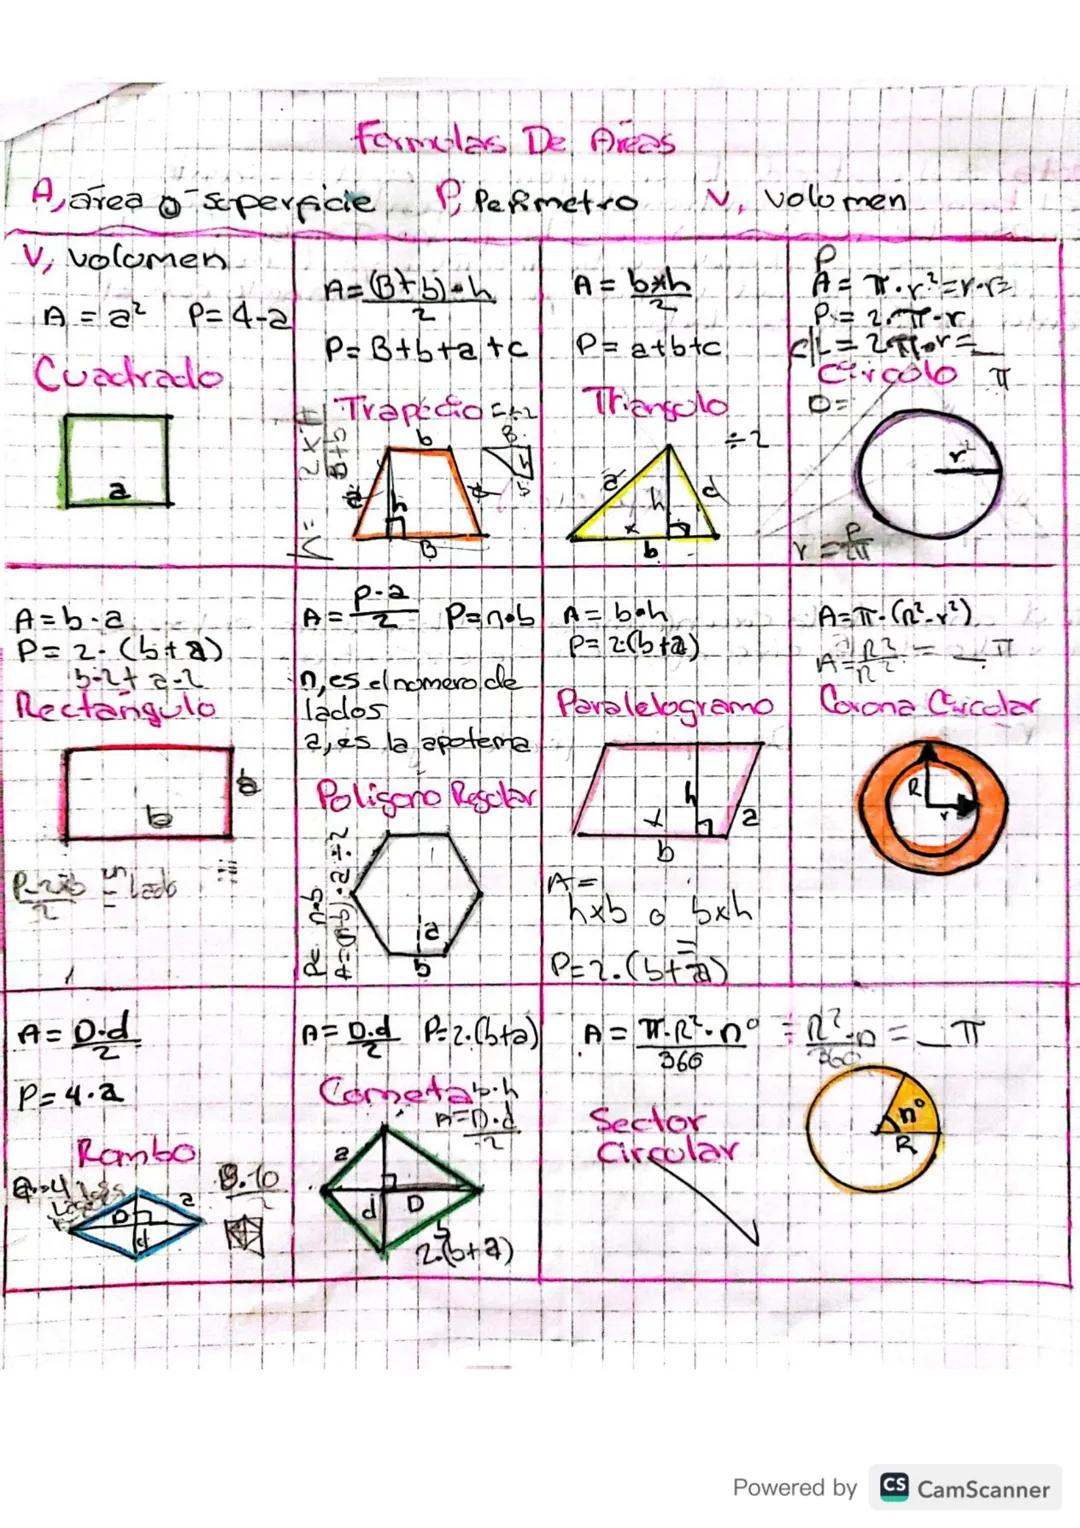 Formulas De Areas
A, área o superficie P, Perimetro V, volumen
V, volumen
A = a² P= 4-a
Cuadrado
a
A= (B+b)·h
2
P= B+b+a+c
Trapecio
÷2
b
B
h
b
h
B
B+b
A = b×h
2
P= a+b+c
Triangulo
÷2
a
h
d
x
b
P
A = π·r²=r·r=
P = 2·π·r
C/L = 2π·r=_
Circolo π
D=
r²
r = P
2π
A= b·a
P= 2·(b+a)
b-2+ a-2
Rectángulo
a
b
P-2×b = un lado
2
A= P·a
2
P=n·b
n, es el numero de
lados
a, es la apotema
Poligono Regolar
P= n·b
a
b
A= b·h
P= 2(b+a)
Paralelogramo
h
x
a
b
A=
h×b o b×h
P=2.(b+a)
A=π·(R²-r²)
π
Corona Circolar
R
r
A= D·d
2
P= 4·a
Rombo
a
D
d
8.10
2
A= D.d
2
P=2.(b+a)
Cometa b·h
A=D.d
2
a
d D
b
2.(b+a)
A = π·R²·n°
360
= R²·n = _π
360
Sector
Circular
n°
R
Powered by CS CamScanner